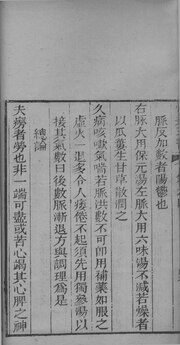 脉反加數者陽鬱也
右脉大用保元湯左脉大用六味湯不減若燥者
以瓜蔞生甘
散潤之
久病咳嗽氣喘若脉洪數不可即用補藥如服之
虛火一退多令人痿倦不起須先用獨參湯以
接其氣數日後數脉漸退方與調理爲是
總論
夫癆者勞也非一端可盡或苦心竭其心脾之神